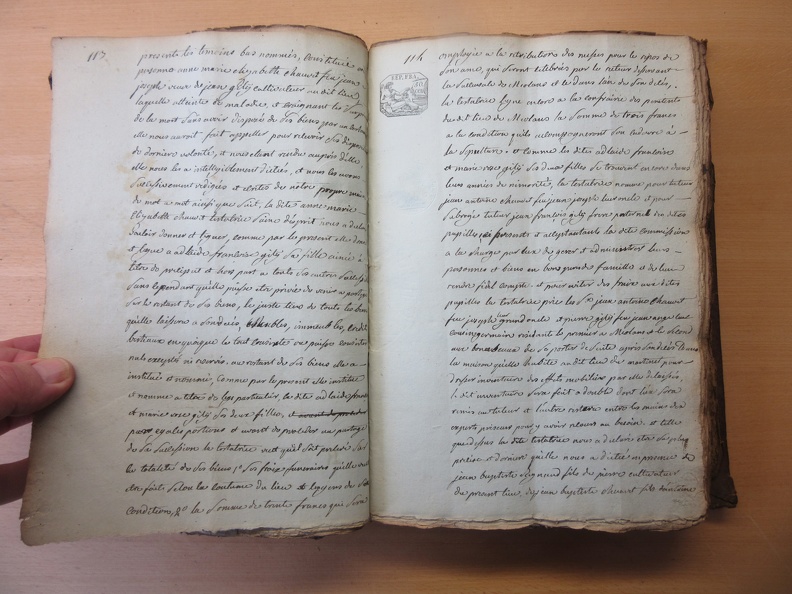 113
presents les temoins bas nommés, constituée en
personne anne marie elizabette chauvet feu jean
joseph veuve de jean gilly cultivateur au dit lieu
laquelle atteinte de maladie, et craignant les
de la mort sans avoir disposé de ses biens par un
elle nous auroit fait appeller pour recevoir ses
de derniere volonté, et nous etant rendu aupres d'elle
elle nous les a intelligidement dictées, et nous les avons
successivement redigées et ecrites de nôtre propre main
de mot a mot ainsy que suit, la dite anne marie
Elizabette chauvet testatrice saine d'esprit nous a
vouloir donner et leguer, comme par les presentes elle donne
et legue a adelaide françoise gilly sa fille ainée a
titre de preciput et hors part a toute ses autres
sans cependant qu'elle puisse etre privée de venir a partage
sur le restant de ses biens, le juste tiers de toute les biens
qu'elle laissera a son decés meubles, immeubles, credit
bestiaux en quoyque le tout consiste ou puisse consister
rien excepté ni reservé. au restant de ses biens elle a
institué et nommé, comme par le present elle institue
et nomme a titre de legs particulier, la dite adelaide françoise
et marie rose gilly ses deux filles,
par egales portions et avant de proceder au partage
de sa succession la testatrice veut qu'il soit prelevé sur
la totalité de ses biens 1° les frais funeraires qu'elle veut
etre faits selon la coutume du lieu et légyens de sa
condition, 2° la somme de trente francs qui sera
114
REP. FRA.
employée a la retribution des messes pour le repos de
son ame, qui seront celebrées par le recteur desservant
la succursale de Miolans et ce dans l'an de son décés,
la testatrice legue encore a la confrairie des penitents
du dit lieu de Miolans la somme de trois francs
a la condition qu'ils accompagneront son cadavre a
la sepulture; et comme les dites adelaide françoise
et marie rose gilly ses deux filles se trouvent encore dans
leurs années de minorités, la testatrice nomme pour tuteur
jean antoine chauvet feu jean joseph leur oncle et pour
subrogé tuteur jean françois gilly frere paternel des dites
pupilles ici presents et acceptants la dite commission
a la charge par eux de gerer et administrer leurs
personnes et biens en bons peres de famille et de leur
rendre fidel compte et pour eviter des frais aux dites
pupilles la testatrice prie les srs jean antoine chauvet
feu joseph leur grand oncle et pierre gilly feu jean ange leur
cousin germain residant le premier a Miolans et le second
aux bonadecaux de se porter de suite apres son decés dans
la maison qu'elle habite au dit lieu du martinet pour
dresser inventaire des effets mobiliers par elle delaissés,
le dit inventaire sera fait a double dont l'un sera
remis au tuteur et l'autre restera entre les mains des
experts priseurs pour y avoir recours au besoin. et telle
que dessus la dite testatrice nous a declaré etre sa plus
precise et derniere qu'elle nous a dictée en presence de
jean baptiste signaud fils de pierre cultivateur
du present lieu, de jean baptiste chauvet fils d'antoine